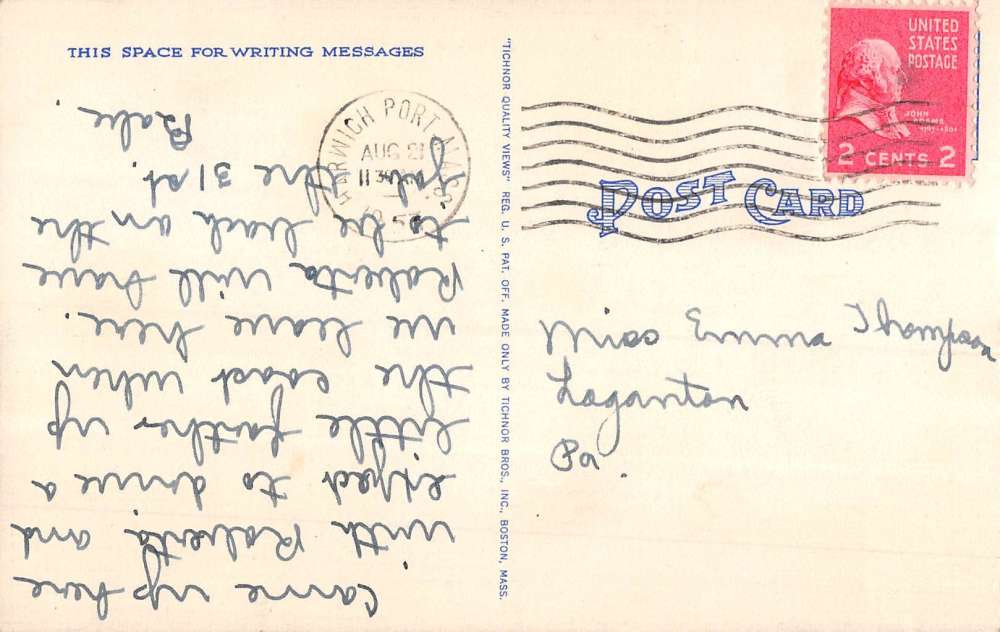 THIS SPACE FOR WRITING MESSAGES
Came up here
with Roberta and
expect to drive a
little farther up
the coast when
we leave here.
Roberta will have
to be back on the
job the 31st.
"TICHNOR QUALITY VIEWS" REG. U. S. PAT. OFF. MADE ONLY BY TICHNOR BROS., INC., BOSTON, MASS.
HARWICH PORT MASS.
AUG 21
11 30 AM
UNITED
STATES
POSTAGE
JOHN
ADAMS
1797-1801
2 CENTS 2
POST CARD
Miss Emma Thompson
Loganton
Pa.